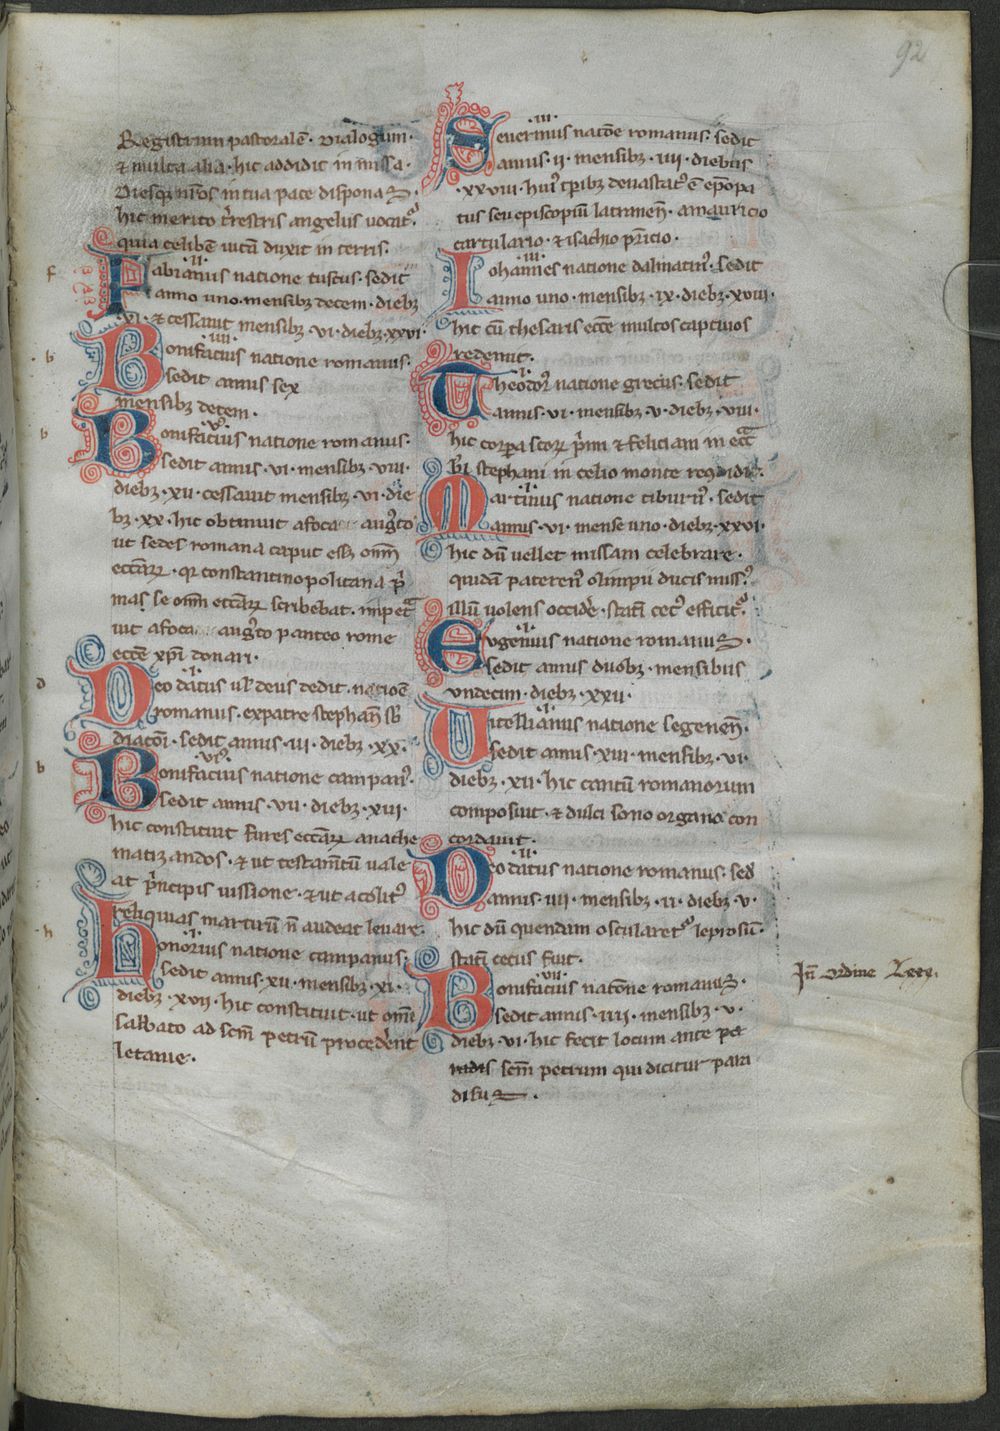 92
Registrum pastoralē· dialogum·
⁊ multa alia· hic addidit in missa·
Diesq; nr̄os in tua pace disponas·
hic merito tr̄restris angelus uocat᷒
quia celibē uitā duxit in terris·
·II·
f Fabianus natione tuscus· sedit
anno uno· mensibꝫ decem· diebꝫ
·VI· ⁊ cessauit mensibꝫ ·VI· diebꝫ ·XXVI·
·IIII·
b Bonifacius natione romanus·
sedit annis sex
mensibꝫ decem·
·V·
b Bonifacius natione romanus·
sedit annis ·VI· mensibꝫ ·VIII·
diebꝫ ·XII· cessauit mensibꝫ ·VI· die
bꝫ ·XX· hic obtinuit afoca aug̾to
ut sedes romana caput eēt om̄
eccārꝝ· qr constantinopolitana p̄
mas se om̄ eccārꝝ scribebat· impet̾
iut afoca aug̾to panteo rome
eccē xp̄i donari·
·I·
d Deo datus ul̄ deus dedit· natiōe
romanus· expatre stephan̄ sb̄
diacōi· sedit annis ·III· diebꝫ ·XX·
·VI·
b Bonifacius natione campan᷒·
sedit annis ·VII· diebꝫ ·XIII·
hic constituit fures eccārꝝ anathe
matizandos· ⁊ ut testam̄tū uale
at p̄ncipis uissione· ⁊ ut acolit᷒
reliquias martirū n̄ audeat leuare·
·I·
h honorius natione campanus·
sedit annis ·XII· mensibꝫ ·XI·
diebꝫ ·XVII· hic constituit· ut om̄i
sabbato ad scm̄ petrū procedēnt
letanie·
·III·
Seuerinus natōe romanus· sedit
annis ·II· mensibꝫ ·IIII· diebus
·XXVIII· hui᷒ tp̄ibꝫ deuastat᷒ ē ep̄opa
tus seu episcopiū latranen̄· amauricio
cartulario· ⁊ isachio p̄ricio·
·IIII·
Iohannes natione dalmatin᷒· sedit
anno uno· mensibꝫ ·IX· diebꝫ ·XVIII·
hic cū thesaris eccē multos captiuos
redemit·
·I·
Theodor᷒ natione grecus· sedit
annis ·VI· mensibꝫ ·V· diebꝫ ·VIII·
hic corpa scorꝝ p̄mi ⁊ feliciani in ecc̄a
Bī stephani in celio monte recōdidit·
·I·
Martinus natione tiburn᷒· sedit
annis ·VI· mense uno· diebꝫ ·XXVI·
hic dū uellet missam celebrare·
quidā pateren᷒ olimpii ducis miss᷒
illū uolens occidē̾· statī cec᷒ efficit᷒·
·I·
Eugenius natione romanus·
sedit annis duobꝫ· mensibus
vndecim· diebꝫ ·XXII·
·I·
Vitellianus natione segenen̄·
sedit annis ·XIII· mensibꝫ ·VI·
diebꝫ ·XII· hic cantū romanorum
composuit· ⁊ dulci sono organa con
cordauit·
·II·
Deo datus natione romanus· sed̄
annis ·IIII· mensibꝫ ·II· diebꝫ ·V·
hic dū quendam oscularet᷒ leprosū·
statī cecus fuit·
·VII·
Bonifacius natōne romanus·
sedit annis ·IIII· mensibꝫ ·V·
diebꝫ ·VI· hic fecit locum ante
scm̄ petrum qui dicitur para
disus·
In ordine